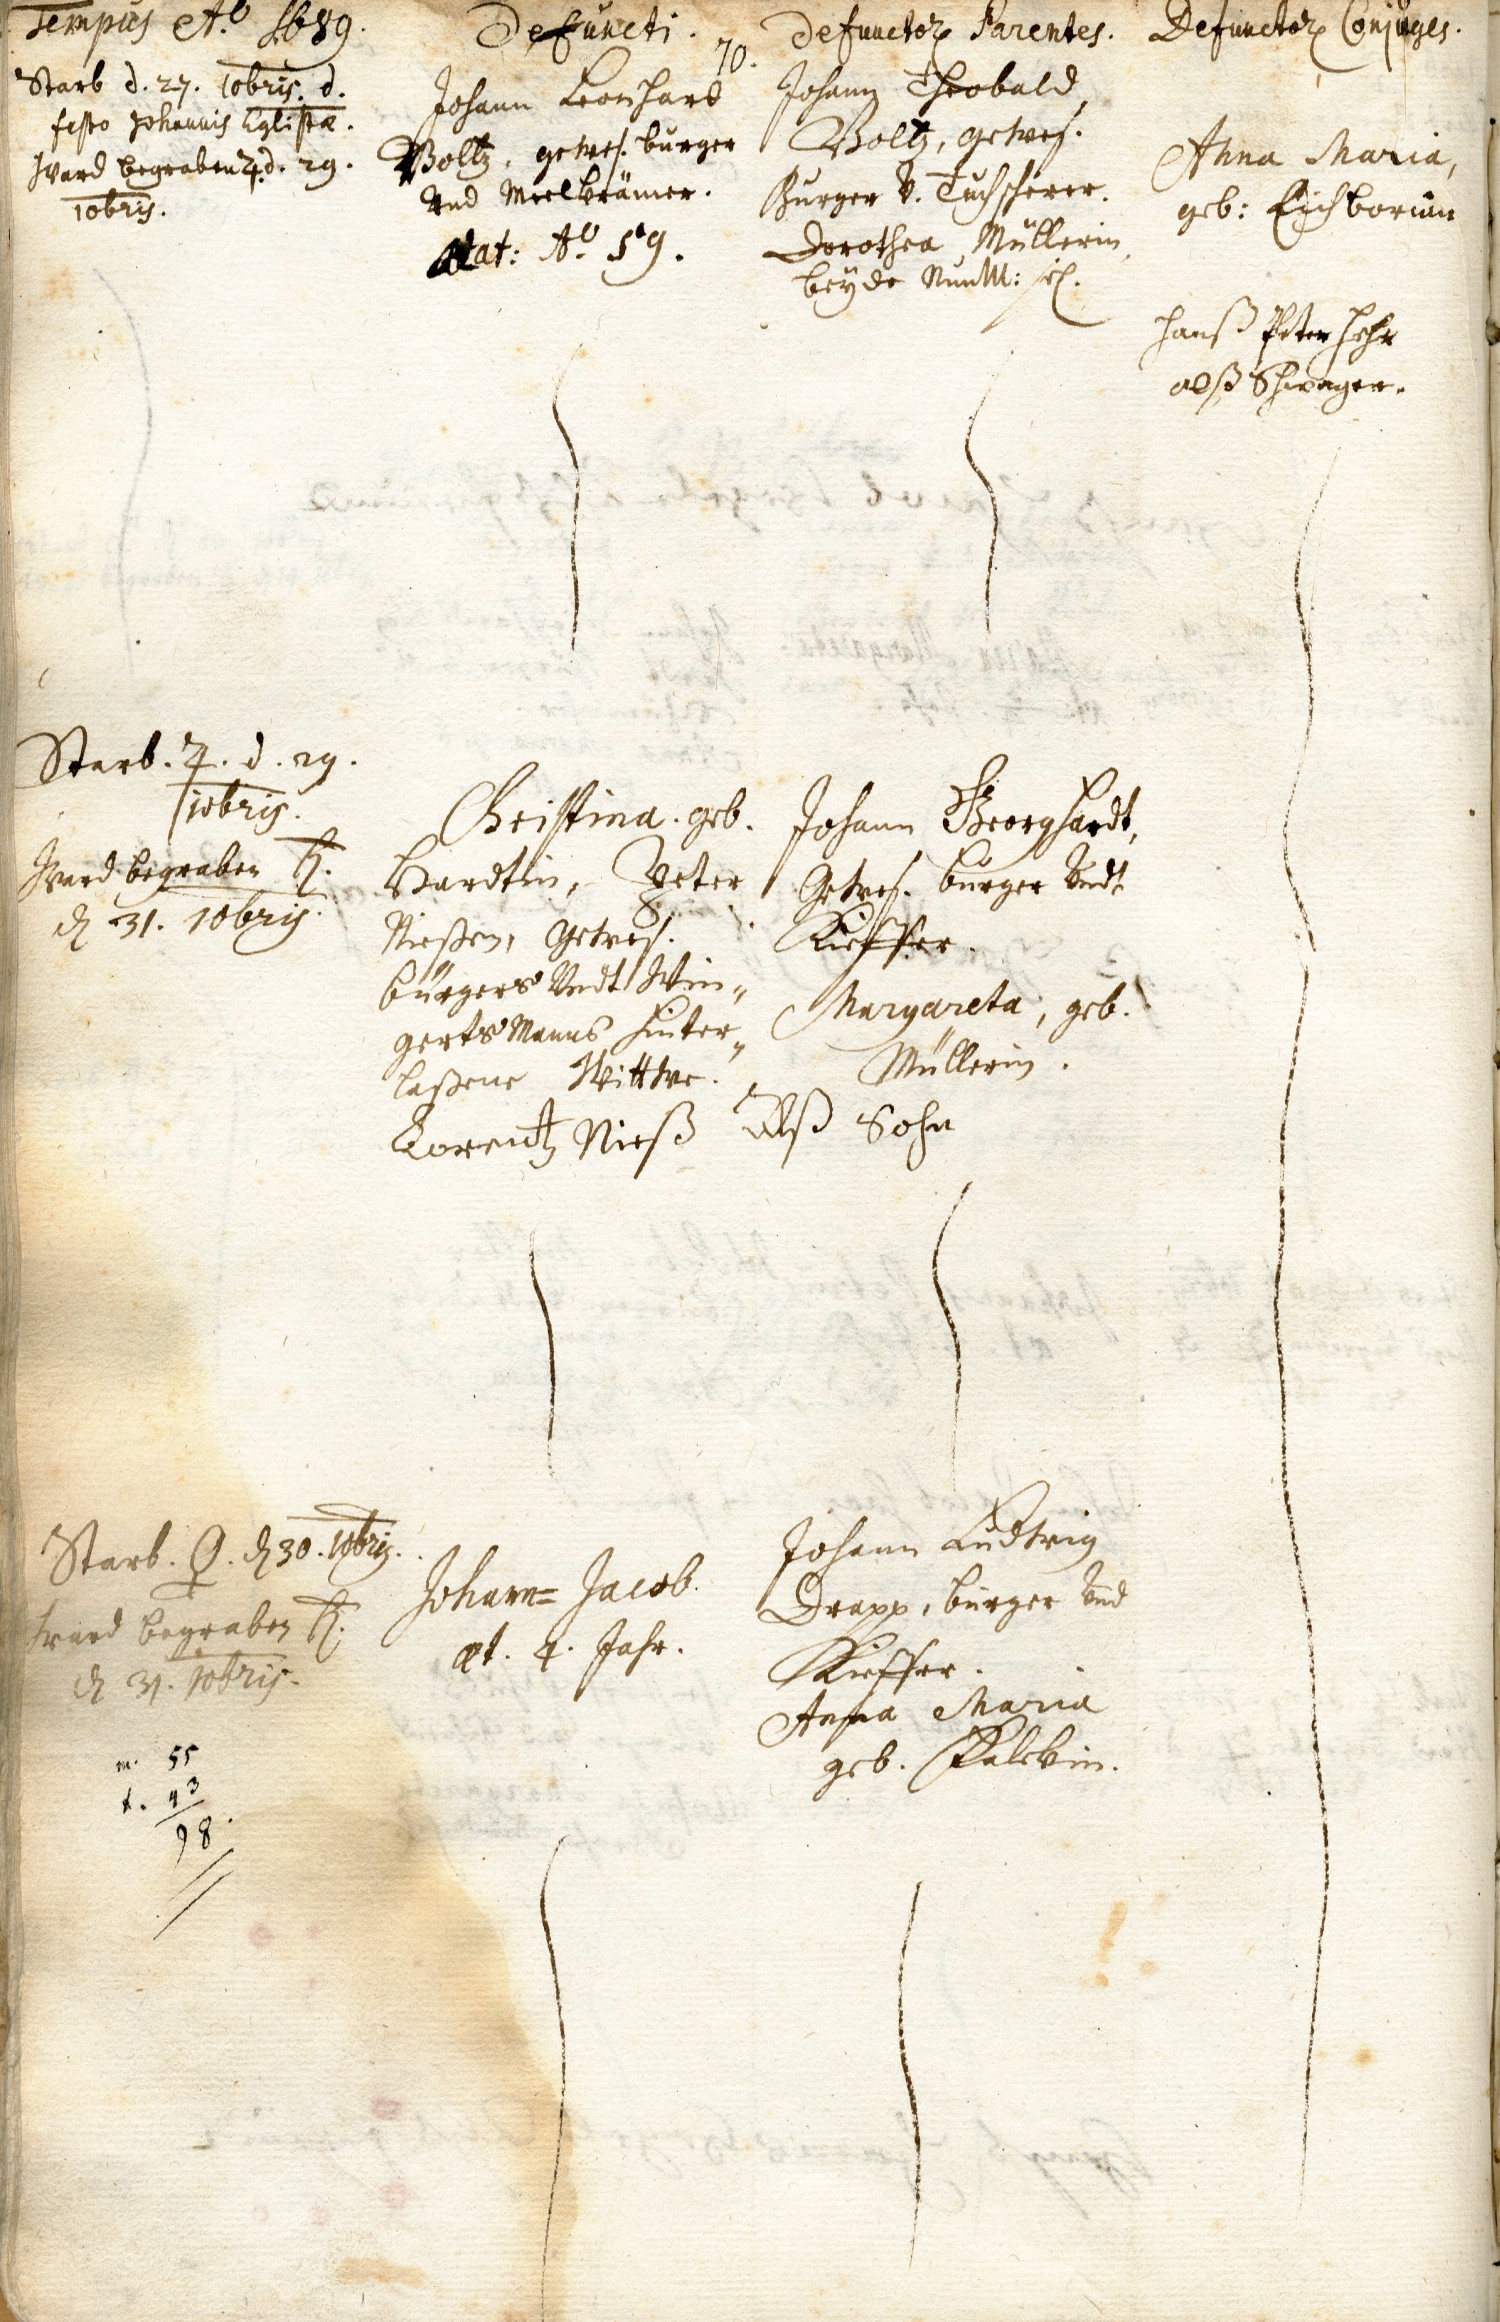 Tempus Aº. 1689.
Defuncti.
70.
Defunctor. Parentes.
Defunctor. Conjuges.
Starb d. 27. 10bris. d.
festo Johannis Eglistæ.
Ward begraben ♃. d. 29.
10bris.
Johann Leonhard
Boltz, gewes. burger
Und Meelkrämer.
Ætat: Aº. 59.
Johann Theobald
Boltz, gewes.
Burger V. Tuchscherer.
Dorothea Müllerin,
beyde nun M: sel.
Anna Maria,
geb: Eichbornin
Hanß Peter
alß Schwager.
Starb. ♃. d. 29.
10bris.
Ward begraben ♄.
d 31. 10bris.
Christina. geb.
Hardtin, Peter
Nießen, Gewes.
bürgers Undt Win„
gerts Manns hinter„
laßene Wittwe.
Lorentz Nieß Alß Sohn
Johann Georg Hardt,
Gewes. burger Undt
Kieffer.
Margareta, geb.
Müllerin.
Starb. ♀. d 30. 10bris.
Ward begraben ♄.
d 31. 10bris.
Johann= Jacob.
æt. 4. Jahr.
Johann Ludwig
Drapp, burger Und
Kieffer.
Anna Maria
geb. Falckin.
m. 55
f. 43
98.